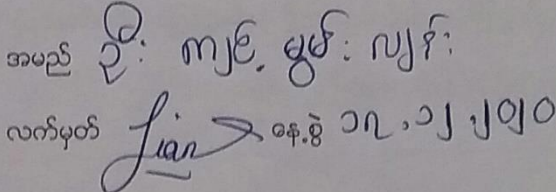 အမည် ဦး ကျင့် မွမ်း လျန်း
လက်မှတ် Lian နေ့စွဲ ၁၇.၁၂.၂၀၂၀